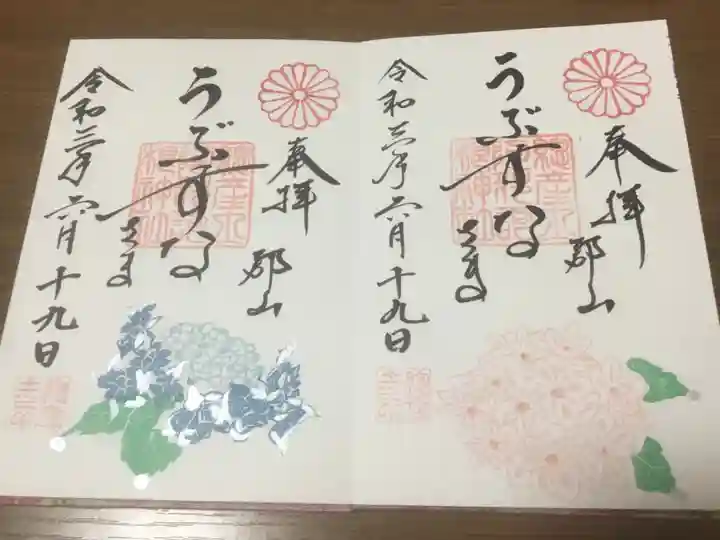 奉拝
郡山
うぶすな
さま
令和三年六月十九日
奉拝
郡山
うぶすな
さま
令和三年六月十九日